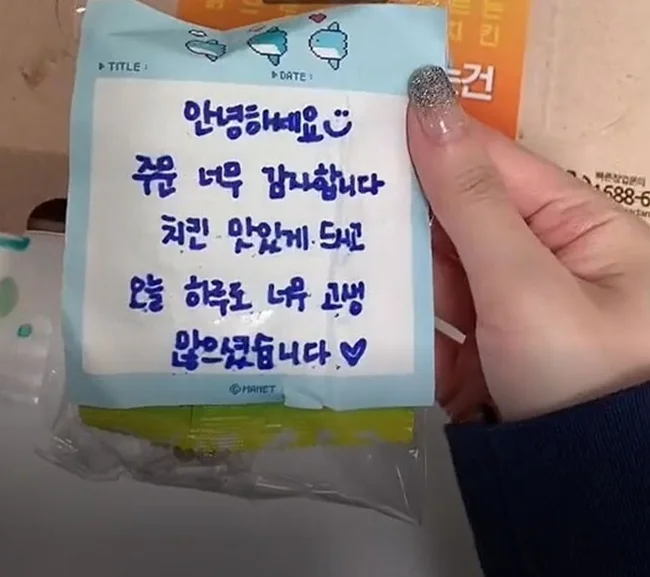 치킨
는건
▶TITLE :
▶DATE :
안녕하세요
주문 너무 감사합니다
치킨 맛있게 드시고
오늘 하루도 너무 고생
많으셨습니다 ♥
©MANET
빠른창업문의
1688-6